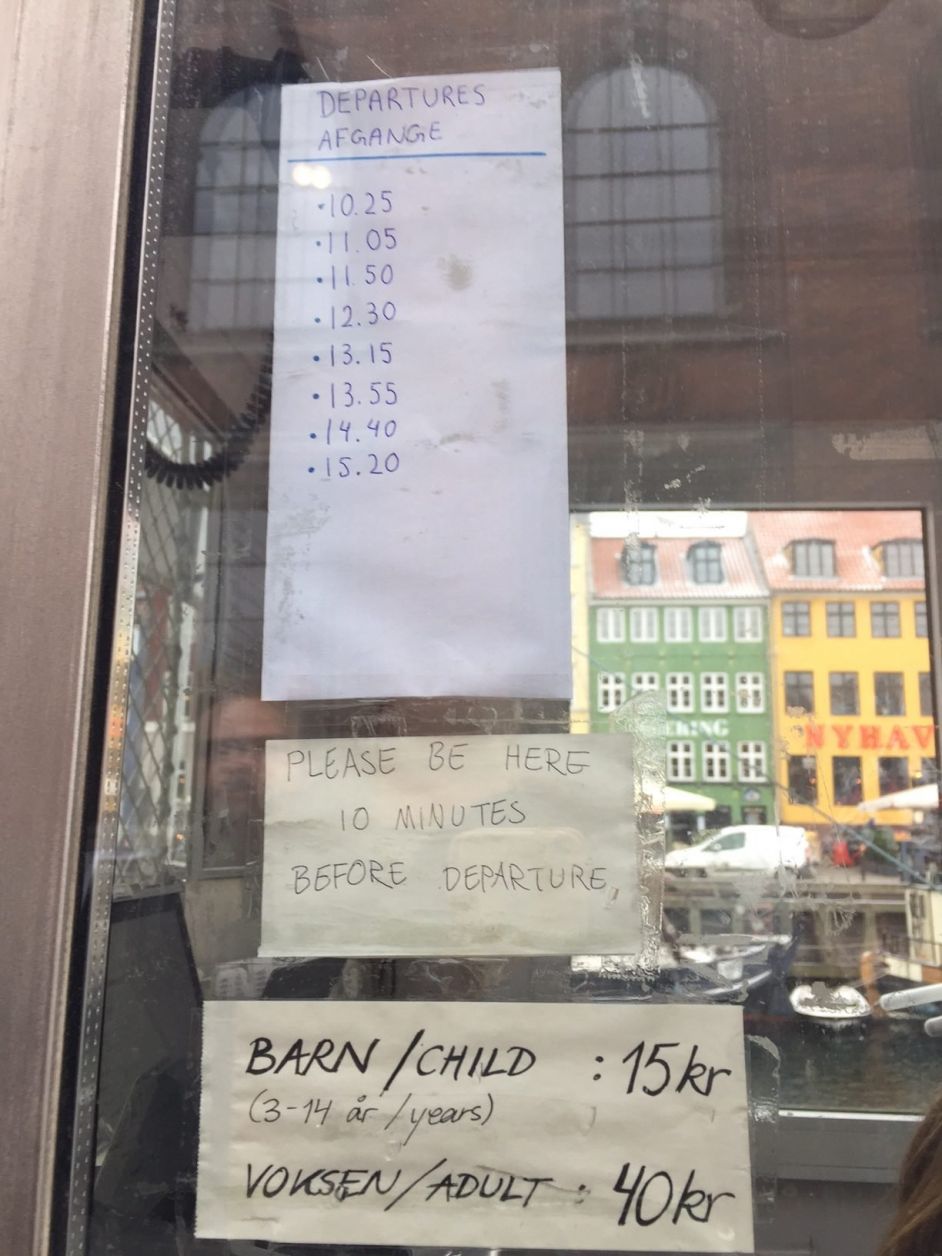 DEPARTURES
AFGANGE
• 10.25
• 11.05
• 11.50
• 12.30
• 13.15
• 13.55
• 14.40
• 15.20
PLEASE BE HERE
10 MINUTES
BEFORE DEPARTURE
BARN/CHILD : 15kr
(3-14 år/years)
VOKSEN/ADULT : 40kr
NYHAV